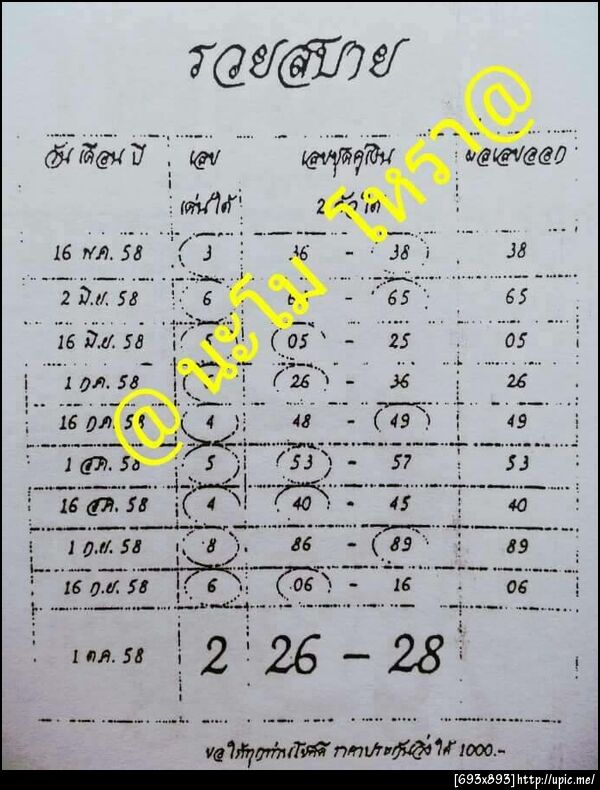 รวยสบาย
วัน เดือน ปี เลข เลขชุดคู่เงิน ผลเลขออก
เด่นได้ 2 ตัวได้
16 พ.ค. 58 3 36 - 38 38
2 มิ.ย. 58 6 - 65 65
16 มิ.ย. 58 05 - 25 05
1 ก.ค. 58 26 - 36 26
16 ก.ค. 58 4 48 - 49 49
1 ส.ค. 58 5 53 - 57 53
16 ส.ค. 58 4 40 - 45 40
1 ก.ย. 58 8 86 - 89 89
16 ก.ย. 58 6 06 - 16 06
1 ต.ค. 58 2 26 - 28
ขอให้ทุกท่านโชคดี ราคาประกันสิ่งให้ 1000.-
@ นะโม โหรา@
[693x893]http://upic.me/